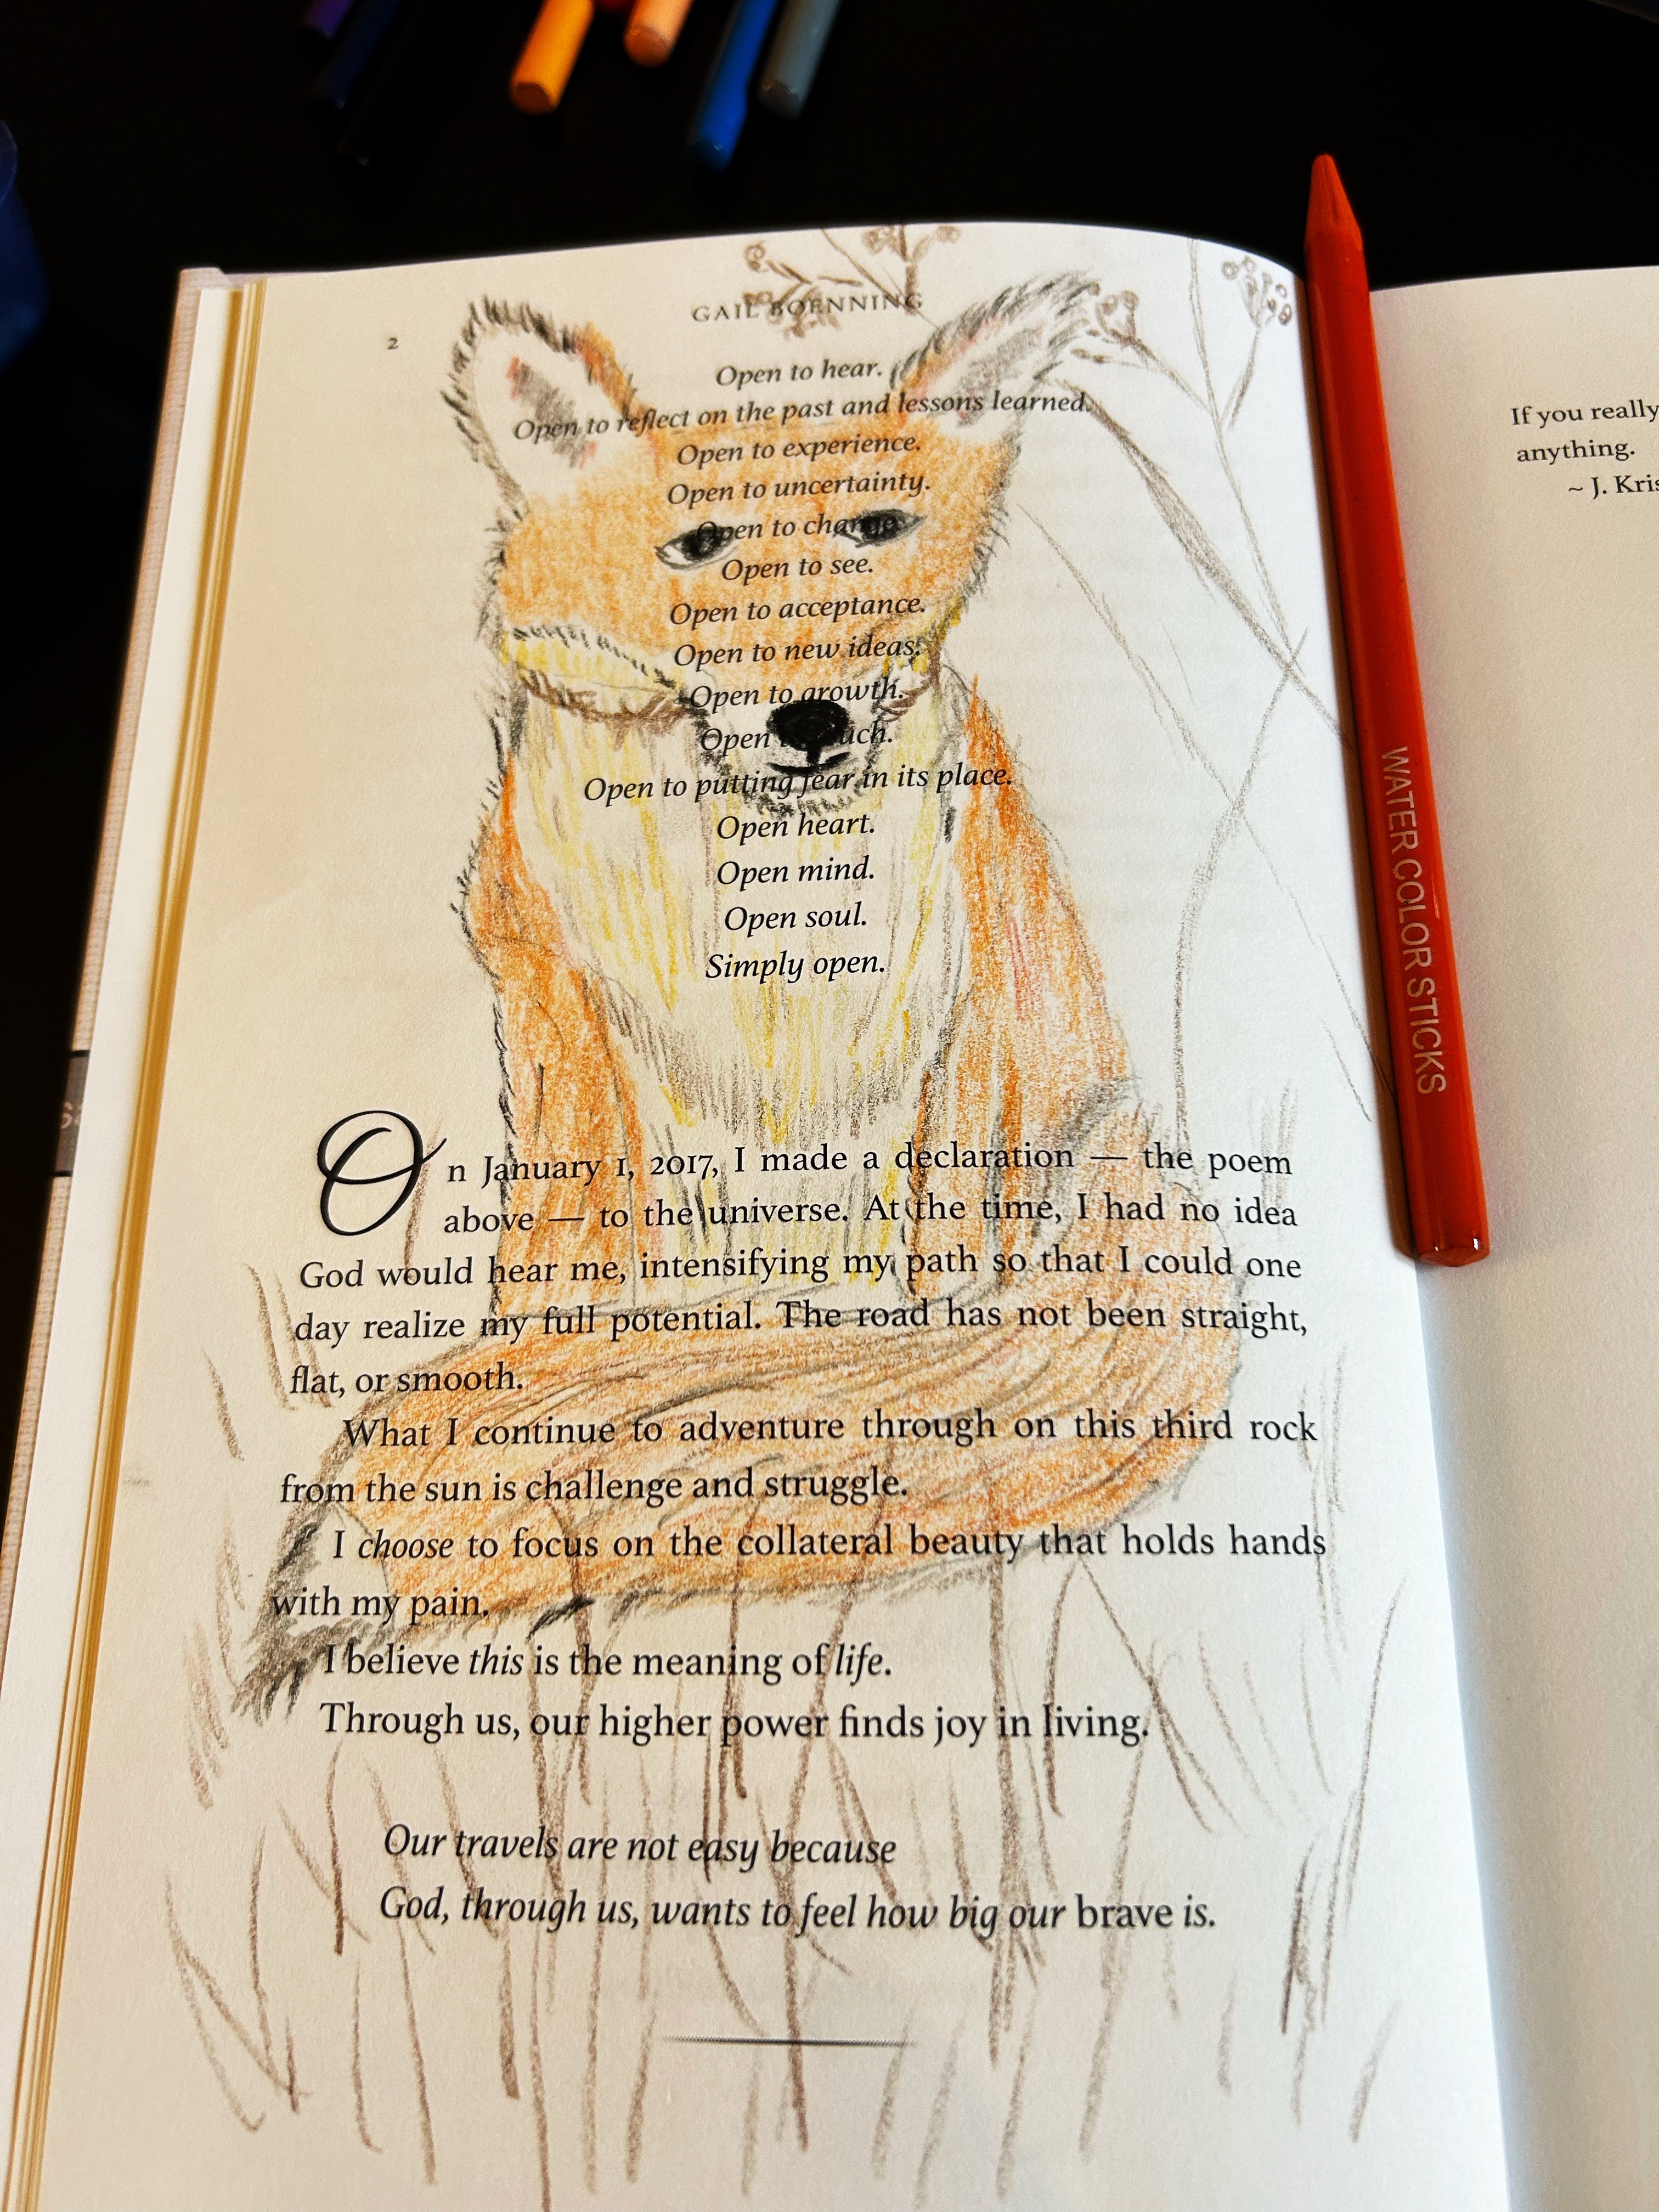 2
GAIL BOENNING
Open to hear.
Open to reflect on the past and lessons learned.
Open to experience.
Open to uncertainty.
Open to change.
Open to see.
Open to acceptance.
Open to new ideas.
Open to growth.
Open
Open to putting fear in its place.
Open heart.
Open mind.
Open soul.
Simply open.
On January 1, 2017, I made a declaration — the poem
above — to the universe. At the time, I had no idea
God would hear me, intensifying my path so that I could one
day realize my full potential. The road has not been straight,
flat, or smooth.
What I continue to adventure through on this third rock
from the sun is challenge and struggle.
I choose to focus on the collateral beauty that holds hands
with my pain.
I believe this is the meaning of life.
Through us, our higher power finds joy in living.
Our travels are not easy because
God, through us, wants to feel how big our brave is.
WATER COLOR STICKS
If you really
anything.
~ J.